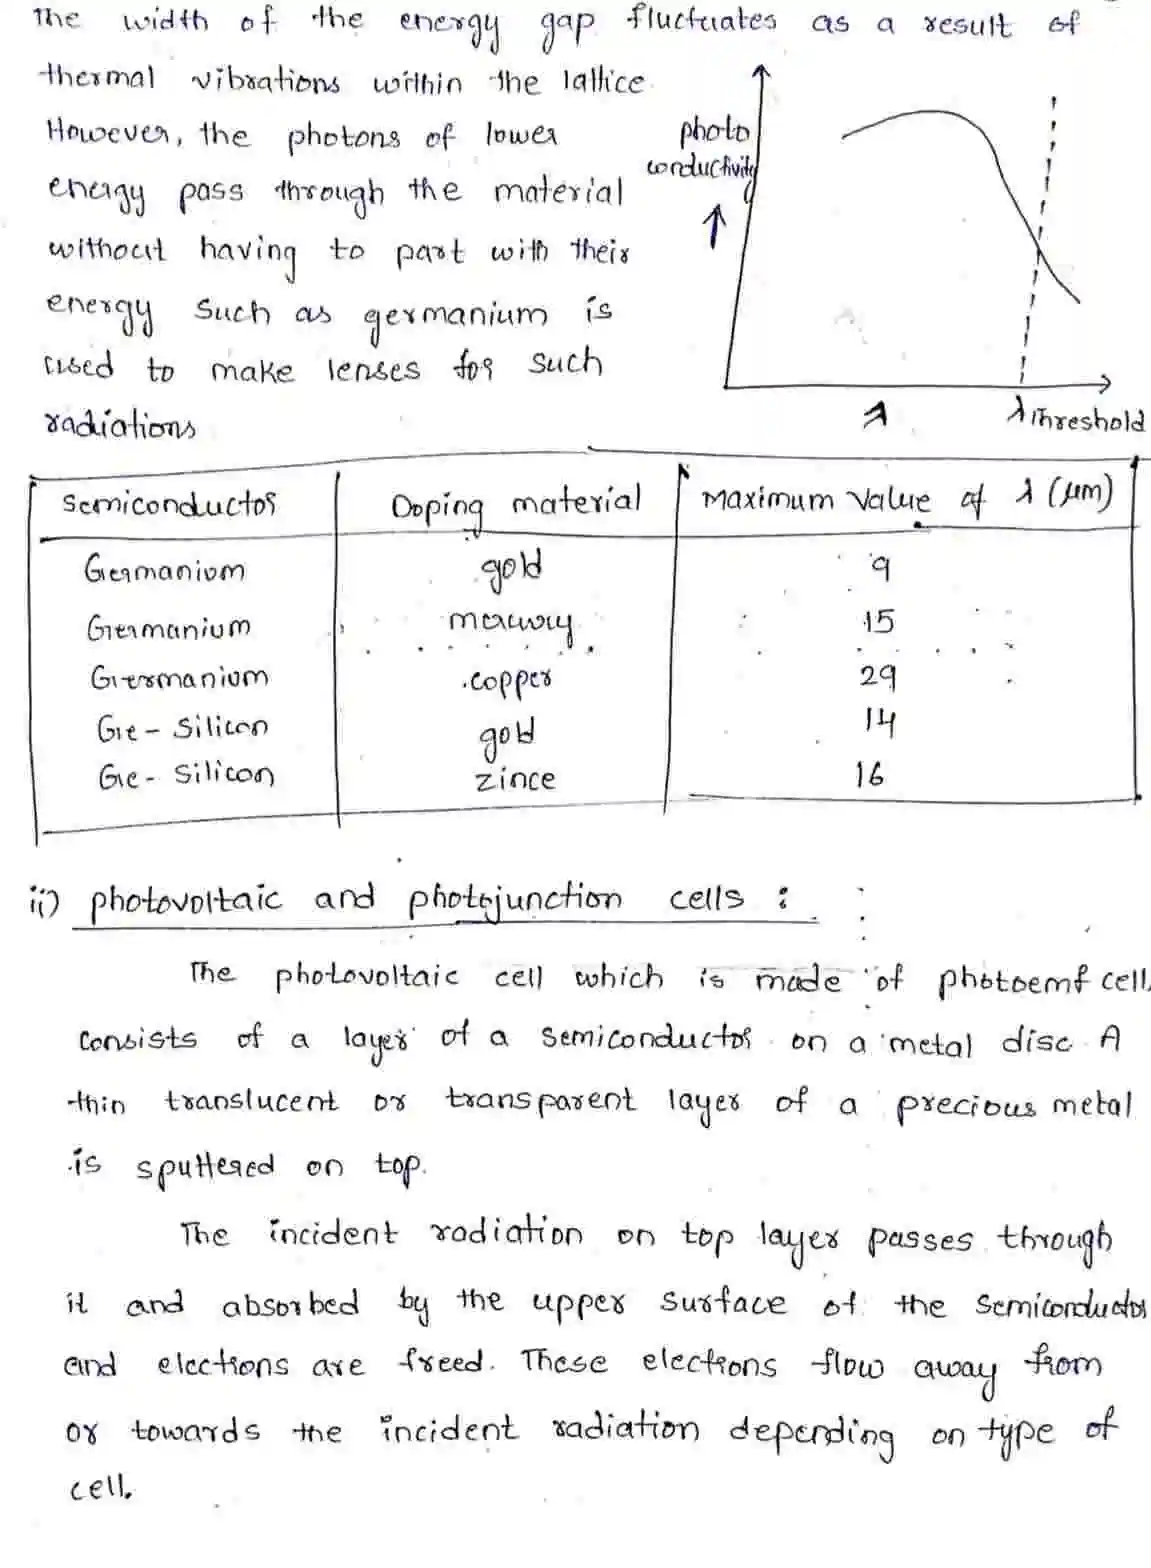 The width of the energy gap fluctuates as a result of
thermal vibrations within the lattice
However, the photons of lower
energy pass through the material
without having to part with their
energy such as germanium is
used to make lenses for such
radiations
photo
conductivity
↑
λ
λ Threshold
Semiconductor Doping material Maximum value of λ (μm)
Germanium gold 9
Germanium mercury 15
Germanium copper 29
Ge - Silicon gold 14
Ge - Silicon zince 16
ii) photovoltaic and photojunction cells :
The photovoltaic cell which is made of photoemf cell
consists of a layer of a semiconductor on a metal disc A
thin translucent or transparent layer of a precious metal
is sputtered on top.
The incident radiation on top layer passes through
it and absorbed by the upper surface of the semiconductor
and elections are freed. These electrons flow away from
or towards the incident radiation depending on type of
cell.